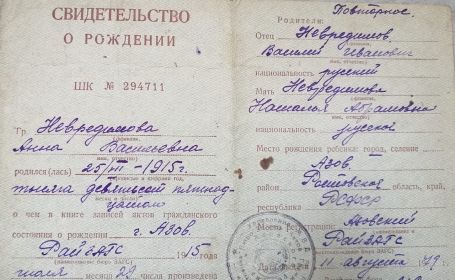 СВИДЕТЕЛЬСТВО
О РОЖДЕНИИ
ШК № 294711
Гр. Невредимова
Анна Васильевна
родился(лась) 25/VII-1915г.
тысяча девятьсот пятнад-
цатого
о чем в книге записей актов гражданского
состояния о рождении г. Азов.
РайЗАГС 1915
июля 29 числа произведена
Повторное.
Родители:
Отец Невредимов
Василий Иванович
национальность русский
Мать Невредимова
Наталья Абрамовна
национальность русская
Место рождения ребенка: город, селение
Азов
район
Ростовская область, край,
республика РСФСР
Место регистрации Азовский
РайЗАГС
11 августа 79